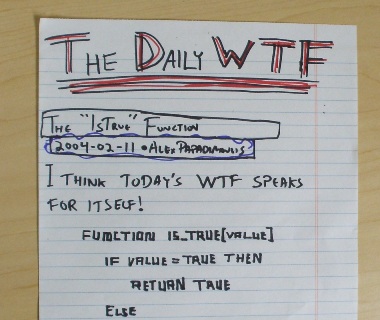 The Daily WTF
The "IsTrue" Function
2004-02-11 • Alex Papadimoulis
I THINK TODAY'S WTF SPEAKS
FOR ITSELF!
FUNCTION IS_TRUE[VALUE]
IF VALUE = TRUE THEN
RETURN TRUE
ELSE